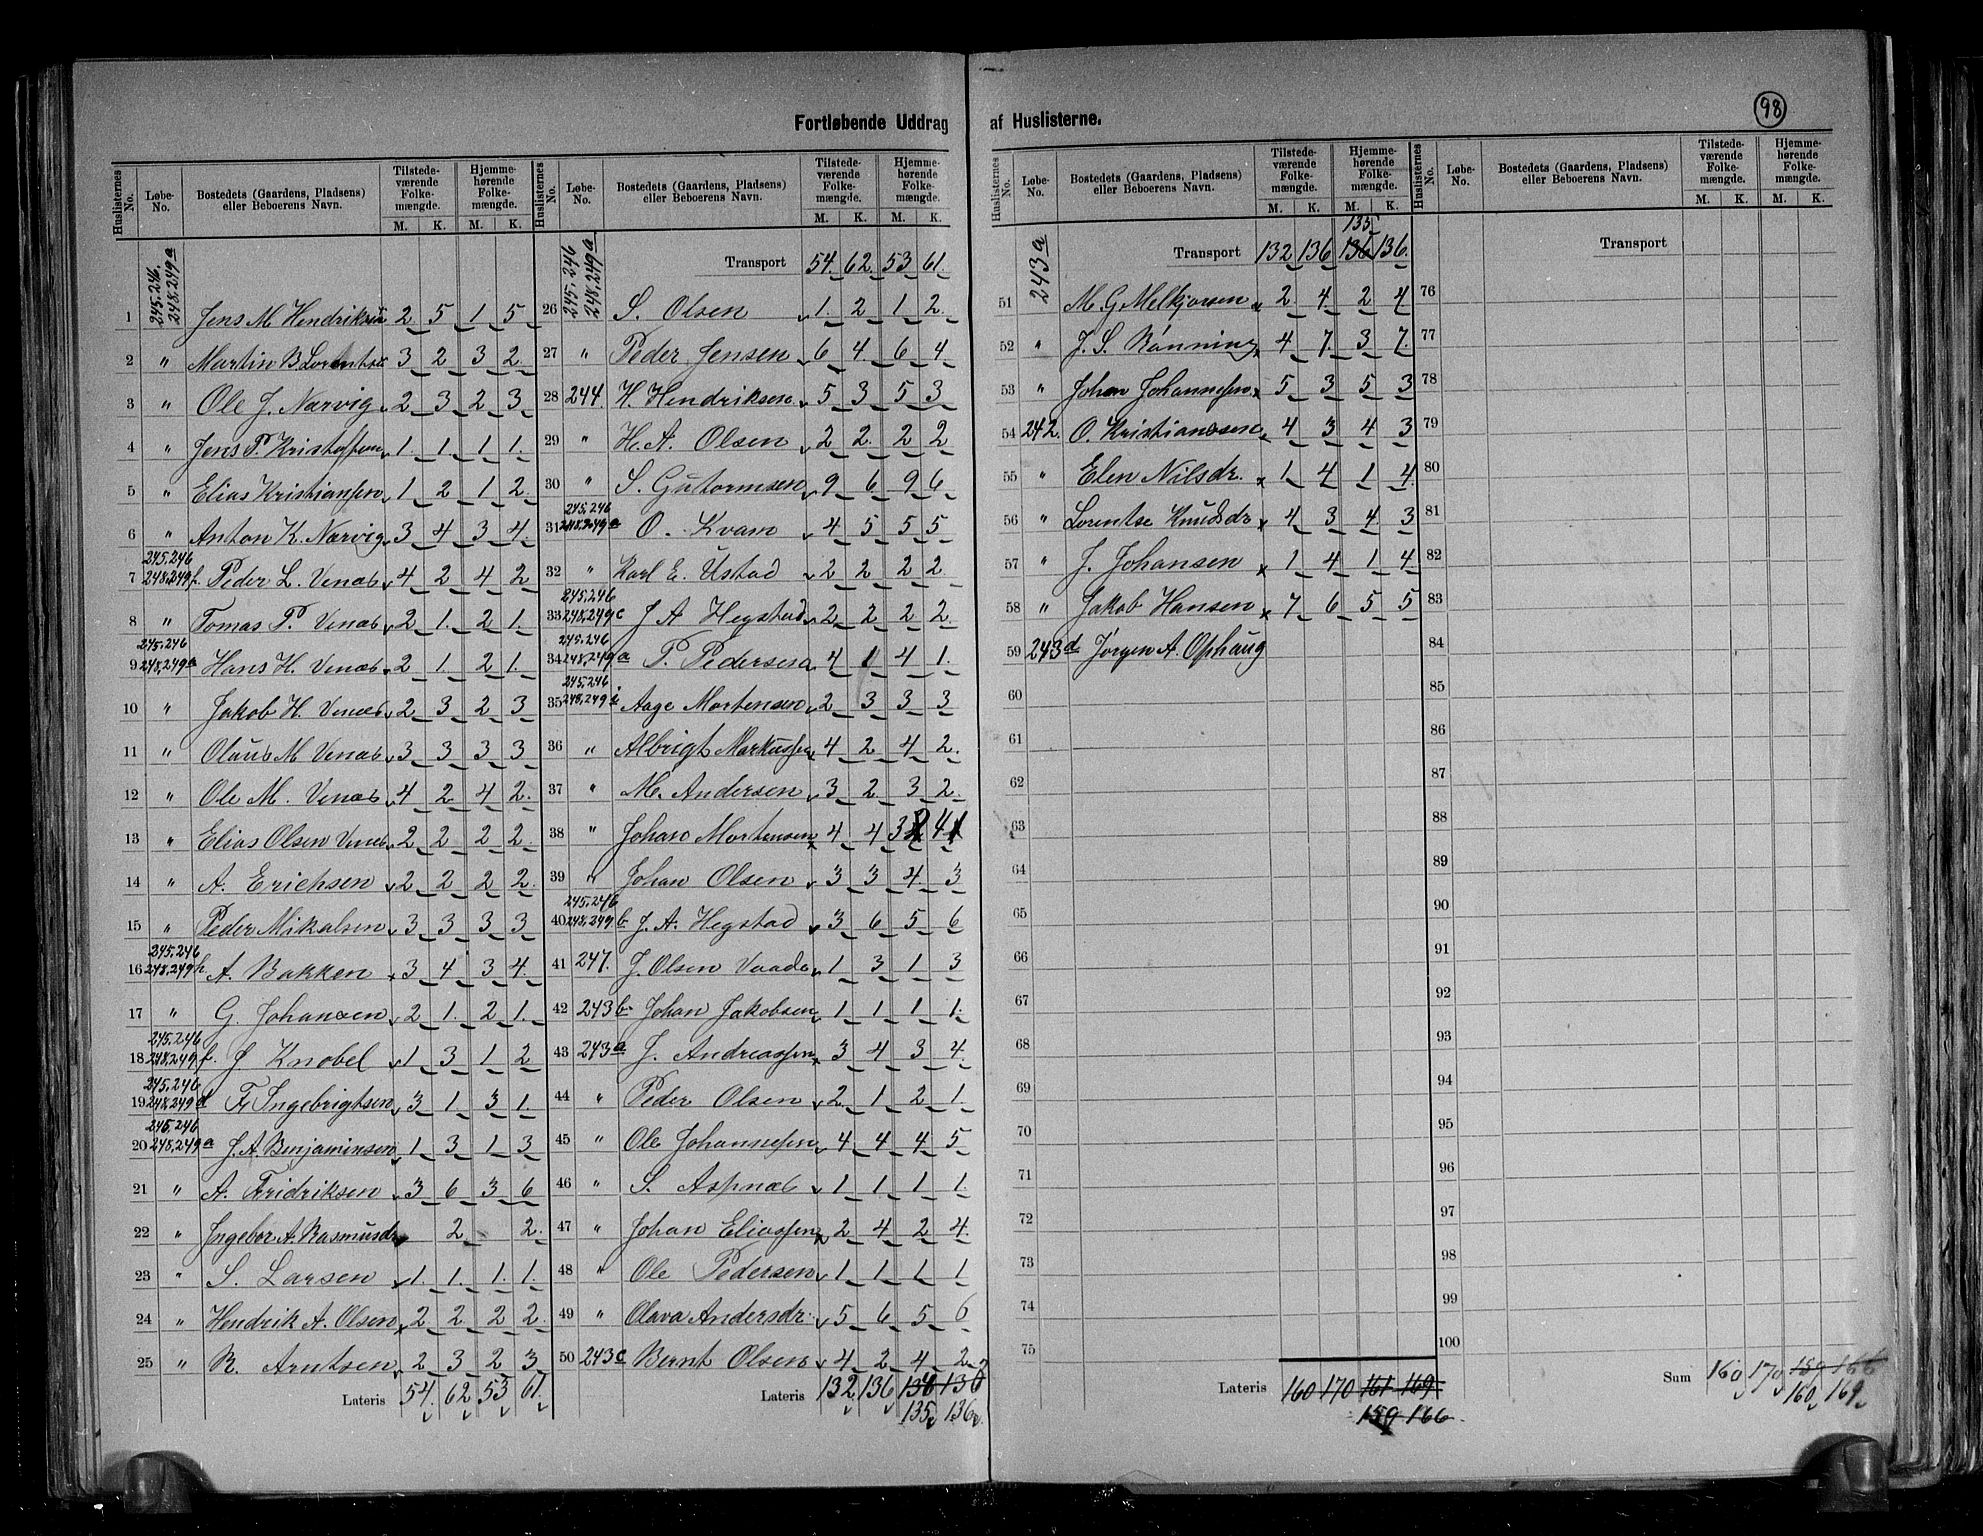 98
Fortløbende Uddrag af Huslisterne.
Huslisternes No. Løbe-No. Bostedets (Gaardens, Pladsens) eller Beboerens Navn. Tilstedeværende Folkemængde. M. K. Hjemmehørende Folkemængde. M. K.
245,246 248,249 a
1 Jens M Hendriksen 2 5 1 5
2 " Martin B Lorentsen 3 2 3 2
3 " Ole J. Nærvig 2 3 2 3
4 " Jens P. Kristoffersen 1 1 1 1
5 " Elias Kristiansen 1 2 1 2
6 " Anton K. Nærvig 3 4 3 4
7 245,246 248,249 f. Peder L. Venæs 4 2 4 2
8 " Tomas P. Venæs 2 1 2 1
9 245,246 248,249 a Hans H. Venæs 2 1 2 1
10 " Jakob H. Venæs 2 3 2 3
11 " Olaus M Venæs 3 3 3 3
12 " Ole M. Venæs 4 2 4 2
13 " Elias Olsen Venæs 2 2 2 2
14 " A. Erichsen 2 2 2 2
15 " Peder Mikalsen 3 3 3 3
16 245,246 248,249 h. A. Bakken 3 4 3 4
17 " G. Johansen 2 1 2 1
18 245,246 248,249 f. J Knobel 1 3 1 2
19 245,246 248,249 d Fr Ingebrigtsen 3 1 3 1
20 245,246 248,249 a J. A. Benjaminsen 1 3 1 3
21 " A. Fridriksen 3 6 3 6
22 " Ingebor A. Rasmusdr 2 2
23 " S. Larsen 1 1 1 1
24 " Hendrik A. Olsen 2 2 2 2
25 " R. Arntsen 2 3 2 3
Lateris 54 62 53 61
Huslisternes No. Løbe-No. Bostedets (Gaardens, Pladsens) eller Beboerens Navn. Tilstedeværende Folkemængde. M. K. Hjemmehørende Folkemængde. M. K.
Transport 54 62 53 61
245,246 248,249 a
26 S. Olsen 1 2 1 2
27 " Peder Jensen 6 4 6 4
28 244. H. Hendriksen 5 3 5 3
29 " H. A. Olsen 2 2 2 2
30 " S. Gutormsen 9 6 9 6
31 245,246 248,249 a O. Kvam 4 5 5 5
32 " Karl E. Ustad 2 2 2 2
33 245,246 248,249 c J A Hegstad 2 2 2 2
34 245,246 248,249 a P. Pedersen 4 1 4 1
35 245,246 248,249 i Aage Mortensen 2 3 3 3
36 " Albrigt Markussen 4 2 4 2
37 " M. Andersen 3 2 3 2
38 " Johan Mortensen 4 4 3 4
39 " Johan Olsen 3 3 4 3
40 245,246 248,249 b J. A. Hegstad 3 6 5 6
41 247. J. Olsen Vaade 1 3 1 3
42 243 b Johan Jakobsen 1 1 1 1
43 243 a J. Andreassen 3 4 3 4
44 " Peder Olsen 2 1 2 1
45 " Ole Johannesen 4 4 4 5
46 " S. Aspnæs 1 1 1 1
47 " Johan Eliassen 2 4 2 4
48 " Ole Pedersen 1 1 1 1
49 " Olava Andersdr. 5 6 5 6
50 243 c Bernt Olsen 4 2 4 2
Lateris 132 136 136 136
135 136
Huslisternes No. Løbe-No. Bostedets (Gaardens, Pladsens) eller Beboerens Navn. Tilstedeværende Folkemængde. M. K. Hjemmehørende Folkemængde. M. K.
135
Transport 132 136 136 136
243 a
51 M. G. Melkjorsen 2 4 2 4
52 " J. S. Rønning 4 7 3 7
53 " Johan Johannesen 5 3 5 3
54 242. O. Kristiansen 4 3 4 3
55 " Elen Nilsdr. 1 4 1 4
56 " Lorentse Knudsdr 4 3 4 3
57 " J. Johansen 1 4 1 4
58 " Jakob Hansen 7 6 5 5
59 243 d Jørgen A. Ophaug
60
61
62
63
64
65
66
67
68
69
70
71
72
73
74
75
Lateris 160 170 161 169
159 166
Huslisternes No. Løbe-No. Bostedets (Gaardens, Pladsens) eller Beboerens Navn. Tilstedeværende Folkemængde. M. K. Hjemmehørende Folkemængde. M. K.
Transport
76
77
78
79
80
81
82
83
84
85
86
87
88
89
90
91
92
93
94
95
96
97
98
99
100
Sum 160 170 159 166
160 169